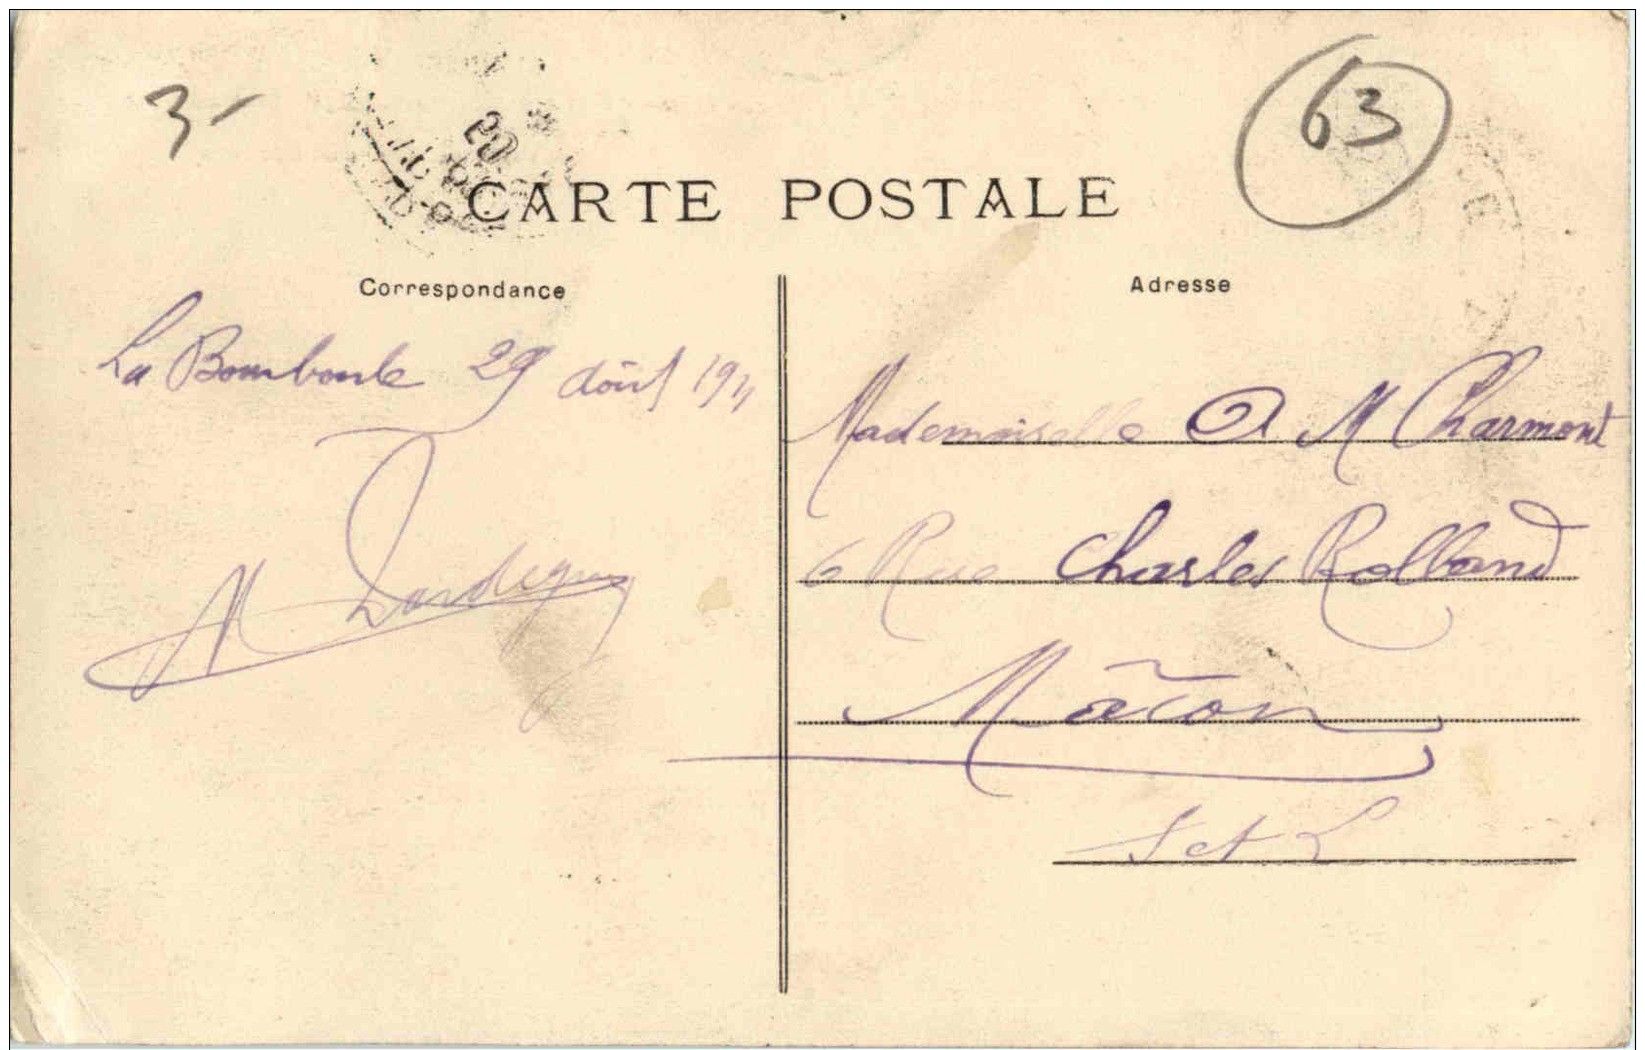 3-
63
CARTE POSTALE
Correspondance
Adresse
La Bourboule 29 août 1911
Mademoiselle M Charmont
6 Rue Charles Rolland
Mâcon
S et L